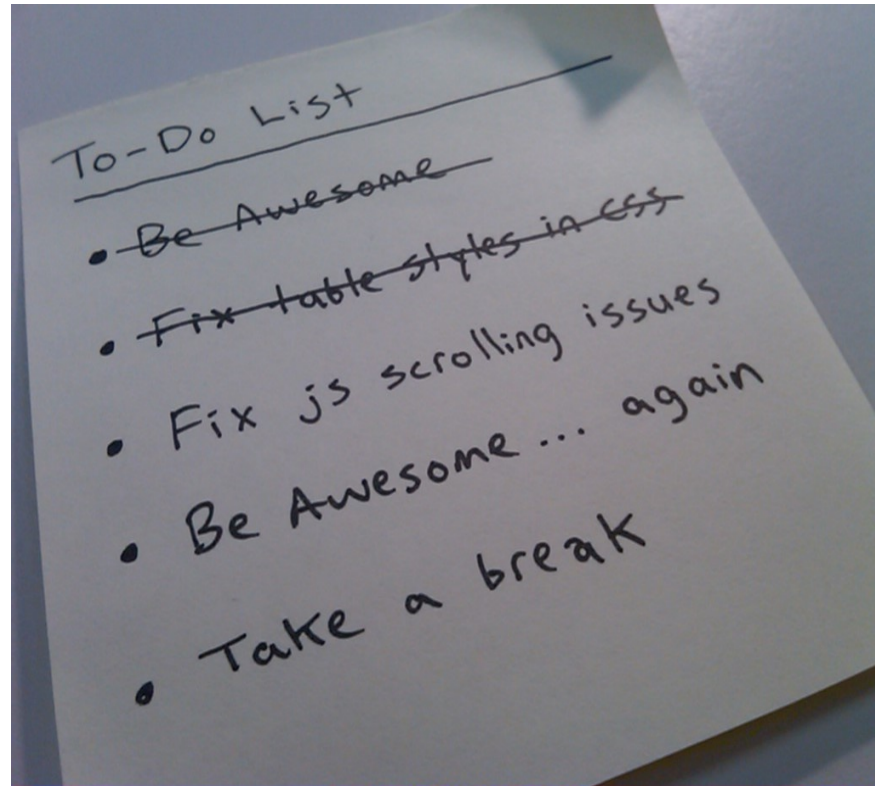 To-Do List
• Be Awesome
• Fix table styles in CSS
• Fix js scrolling issues
• Be Awesome... again
• Take a break